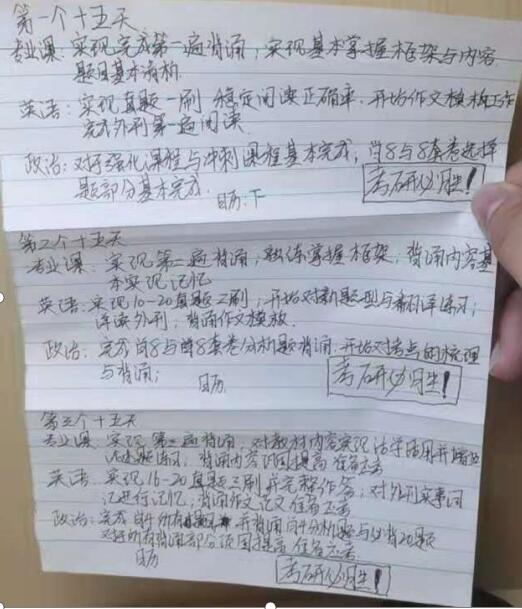 第一个十五天
专业课：实现完成第一遍背诵，实现基本掌握框架与内容
题目基本
英语：实现真题一刷 稳定阅读正确率，开始作文模板工作
完成外刊第一遍阅读
政治：对于强化课程与冲刺课程基本完成，肖8与8套卷选择
题部分基本完成.
考研必胜！
第二个十五天
专业课：实现第二遍背诵，熟练掌握框架，背诵内容基
本实现记忆
英语：实现10-20真题二刷；开始对新题型与翻译练习；
泽读外刊，背诵作文模板.
政治：完成肖8与肖8套卷分析题背诵，开始对考点的梳理
与背诵；
考研必胜！
第三个十五天
专业课：实现第三遍背诵，对教材内容实现活学活用并
题练习，背诵内容巩固提高 准备
英语：实现16-20真题三刷并完整作答；对外刊实事词
汇进行记忆；背诵作文范文 准备
政治：完成肖所有 并背诵肖4分析题与必背20题
对于所有背诵部分巩固提高 准备
考研必胜！